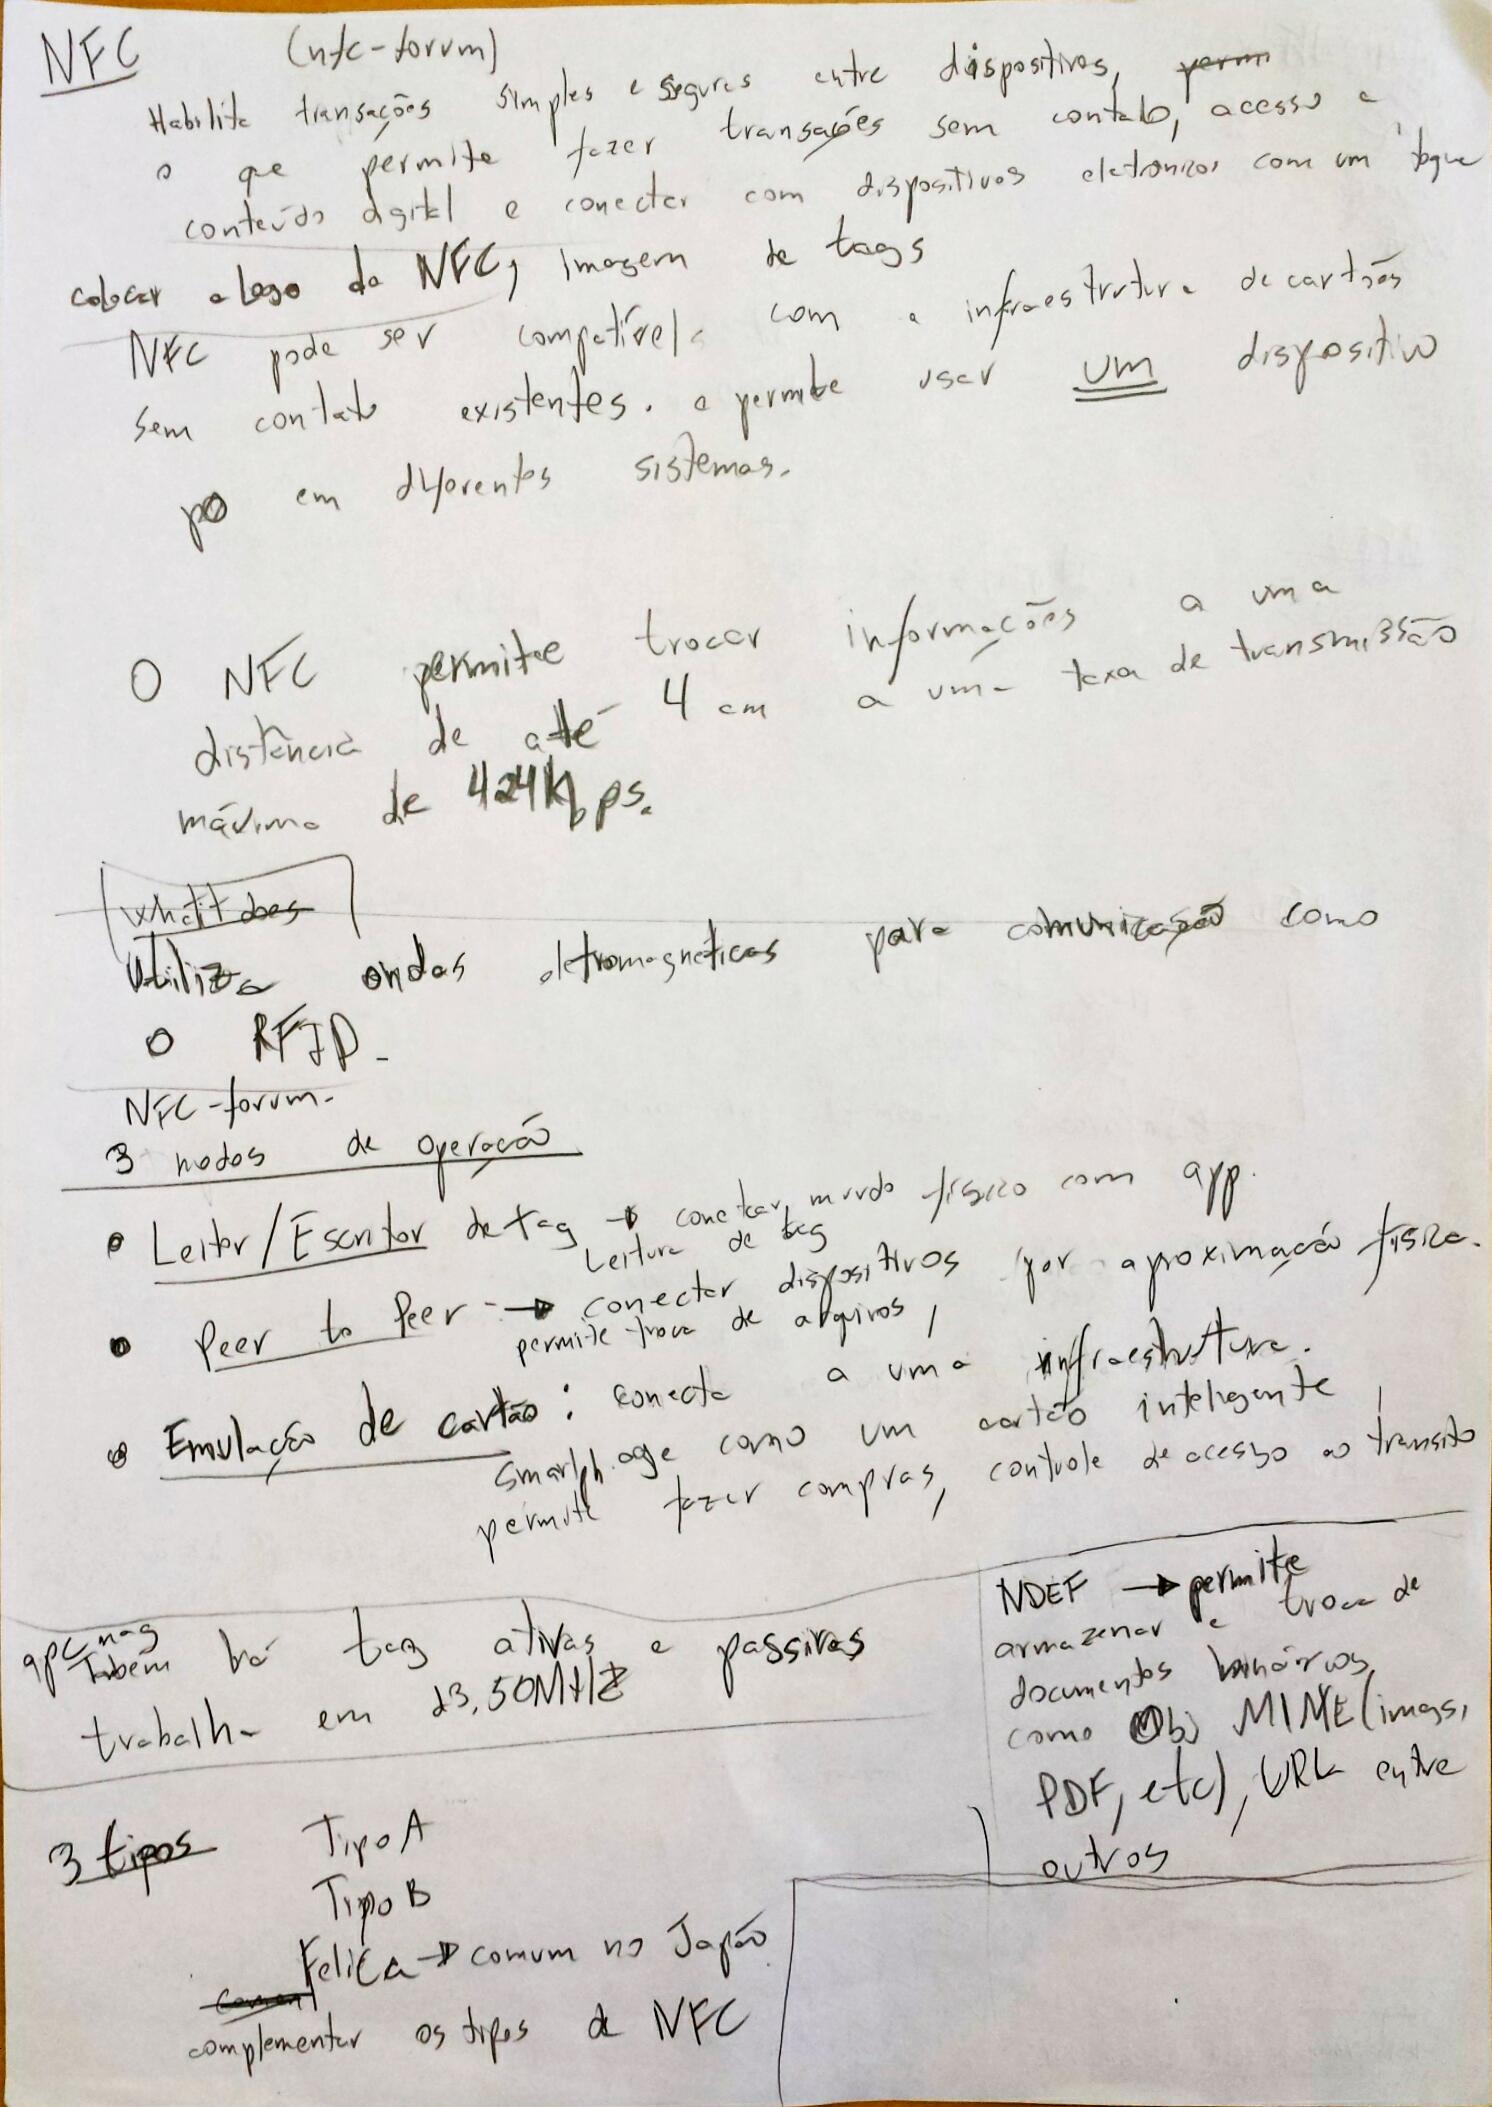 NFC (nfc-forum)
Habilita transações simples e seguras entre dispositivos, permi
o que permite fazer transações sem contato, acesso a
conteúdo digital e conectar com dispositivos eletronicos com um toque
colocar a logo da NFC, imagem de tags
NFC pode ser compatível com a infraestrutura de cartões
sem contato existentes. e permite usar um dispositivo
po em diferentes sistemas.
O NFC permite trocar informações a uma
distância de até 4 cm a uma taxa de transmissão
máxima de 424Kbps.
what it does
Utiliza ondas eletromagnéticas para comunicação como
o RFID.
NFC-forum.
3 modos de operação
• Leitor/Escritor de tag → conectar mundo físico com app.
Leitura de tag
• Peer to Peer → conectar dispositivos por aproximação física.
permite troca de arquivos,
• Emulação de cartão: conecta a uma infraestrutura.
Smartph. age como um cartão inteligente,
permite fazer compras, controle de acesso ao transito
NDEF → permite
armazenar e troca de
documentos binários
como Obj MIME (imags,
PDF, etc), URL entre
outros
apcmag
Tabém há tag ativas e passivas
trabalha em 13,50MHz
3 tipos Tipo A
Tipo B
FeliCa → comum no Japão
complementar os tipos de NFC